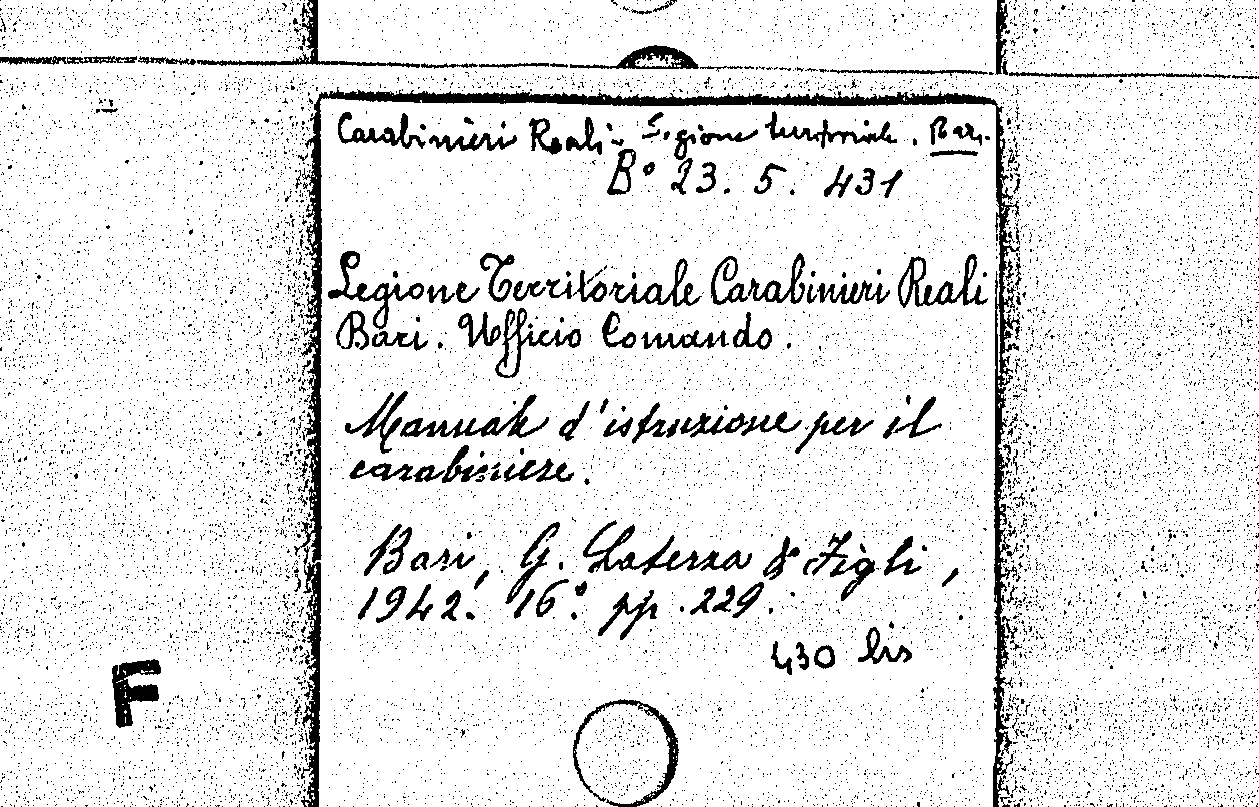 Carabinieri Reali - Legione territoriale. Bari.
B° 23. 5. 431
Legione Territoriale Carabinieri Reali
Bari. Ufficio Comando.
Manuale d'istruzione per il
carabiniere.
Bari, G. Laterza & Figli,
1942. 16° pp. 229.
430 bis
F